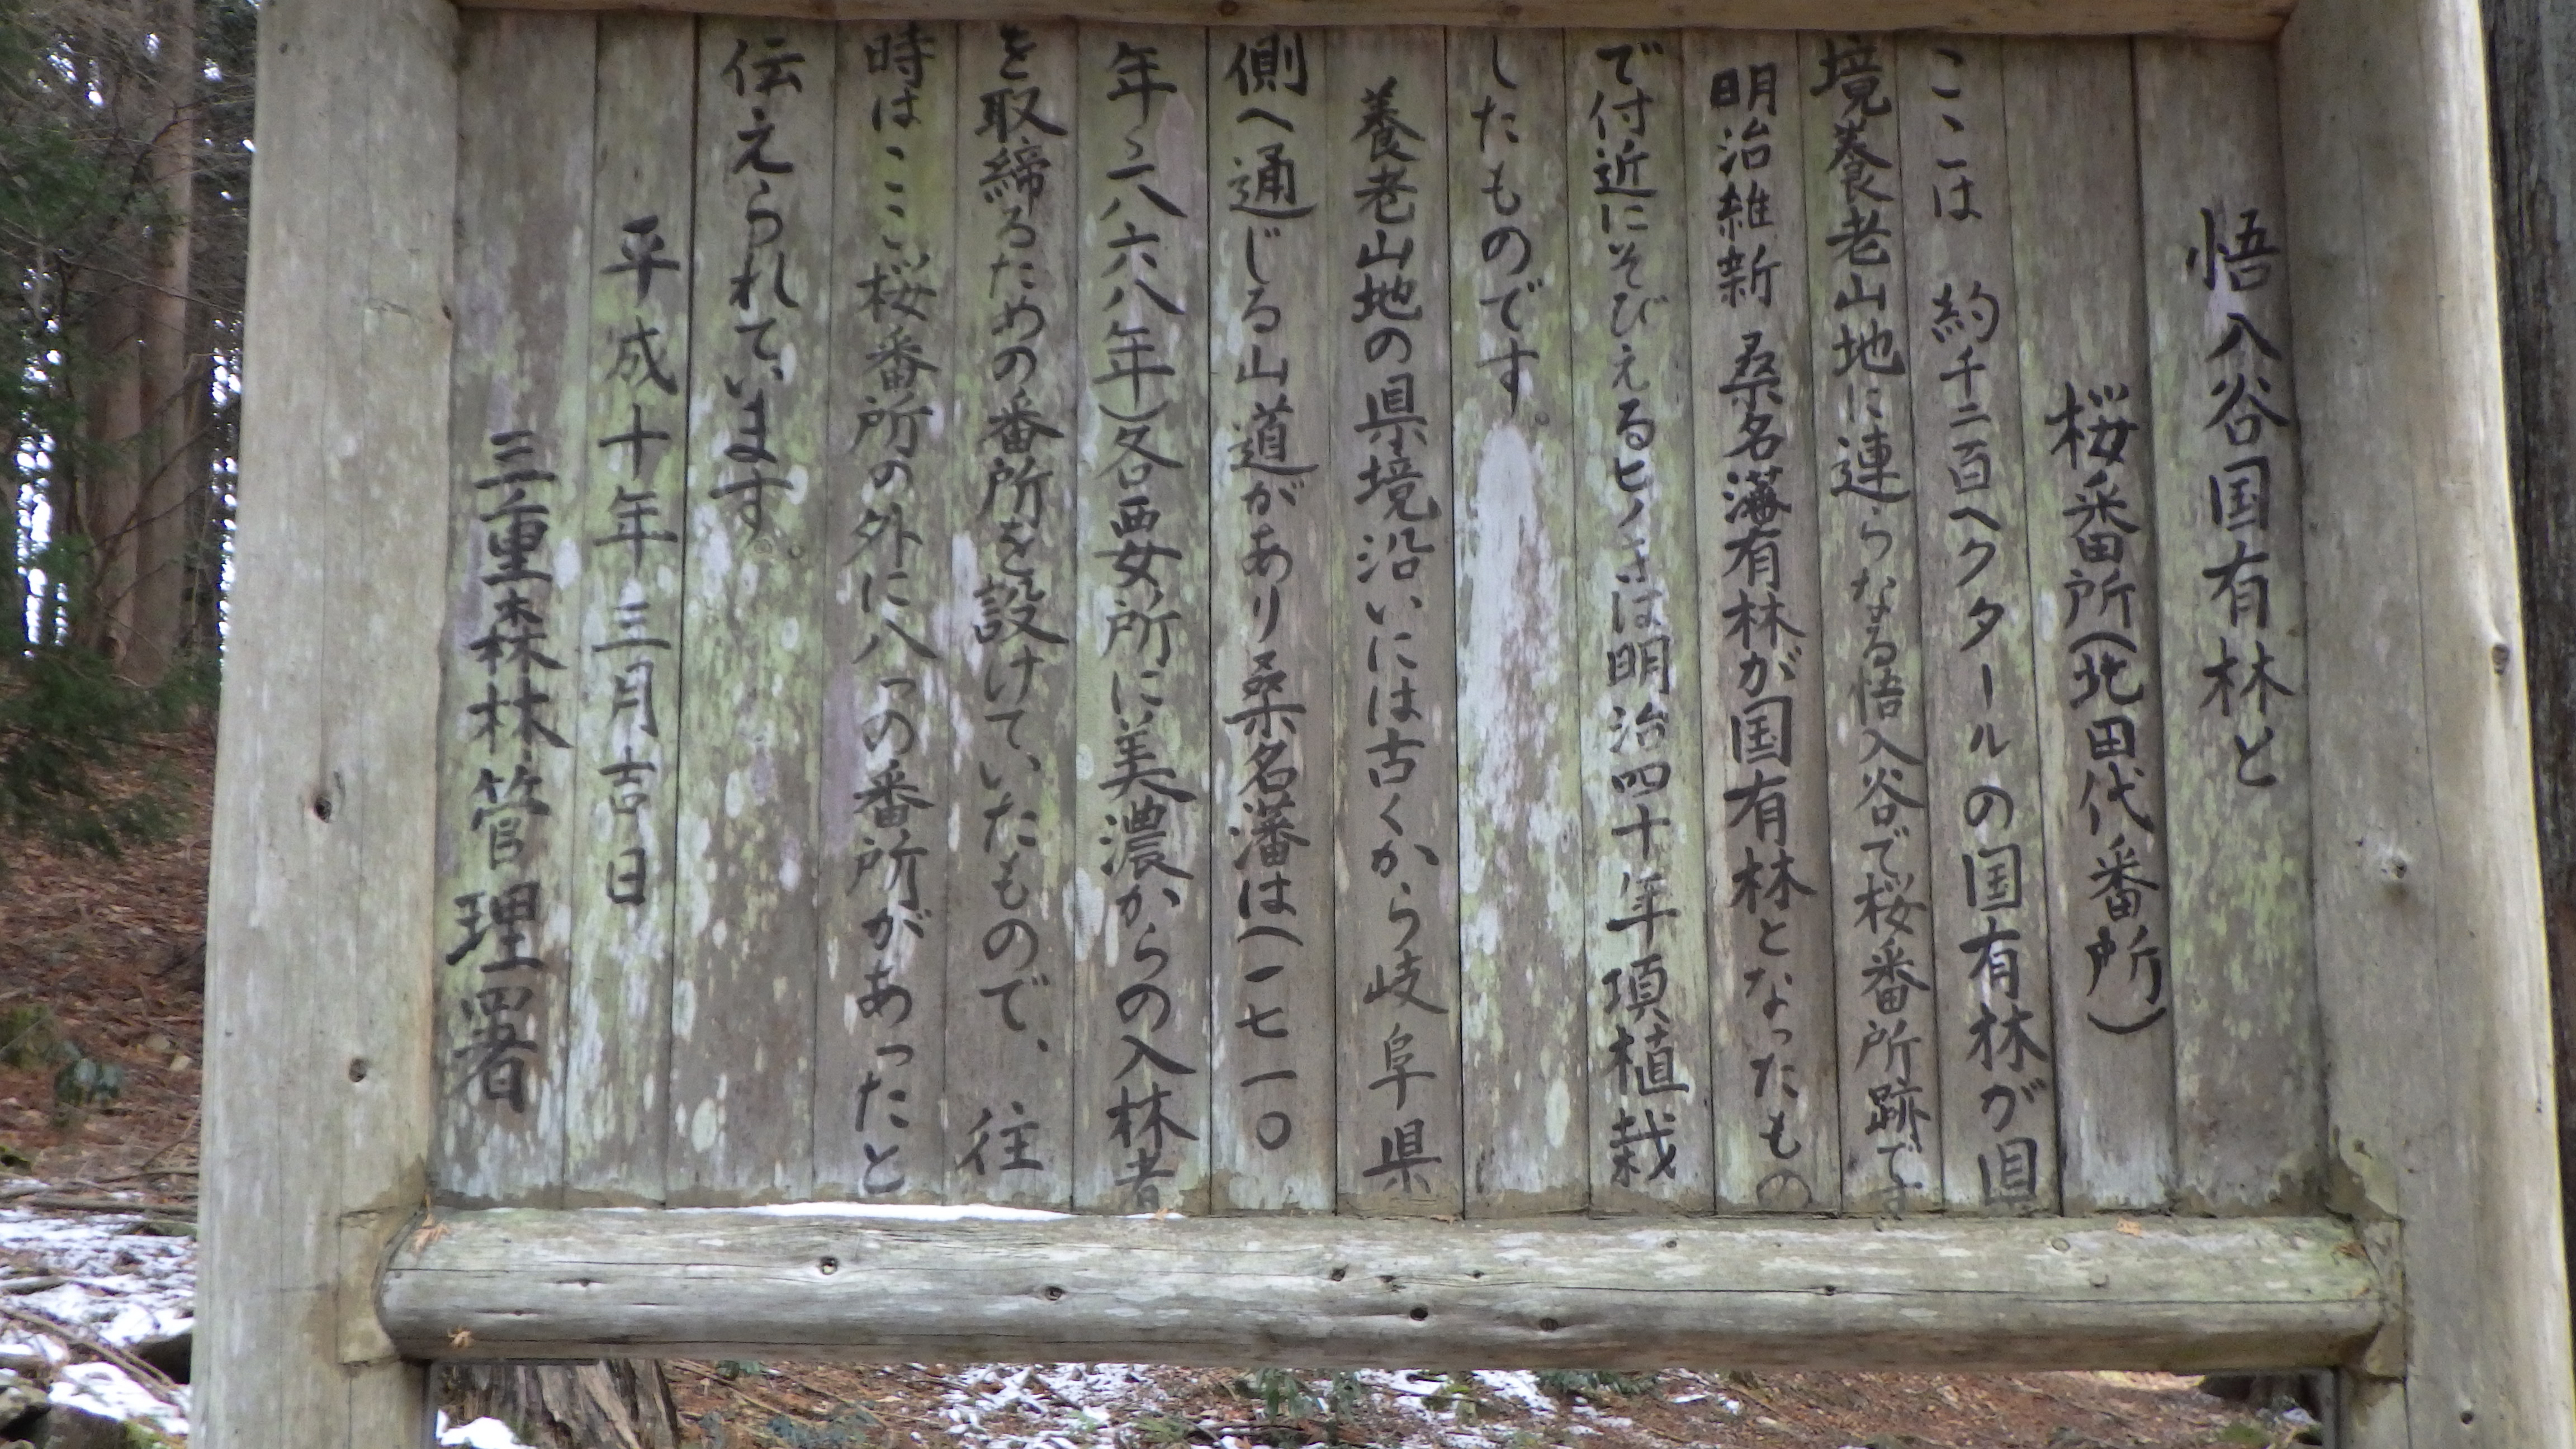 悟入谷国有林と
桜番所(北田代番所)
ここは 約千二百ヘクタールの国有林が県
境養老山地に連らなる悟入谷で桜番所跡です
明治維新 桑名藩有林が国有林となったもの
で付近にそびえるヒノキは明治四十年項植栽
したものです。
養老山地の県境沿いには古くから岐阜県
側へ通じる山道があり桑名藩は(一七一〇
年〜一八六八年)各要所に美濃からの入林者
を取締るための番所を設けていたもので、往
時はここ桜番所の外に八つの番所があったと
伝えられています。
平成十年三月吉日
三重森林管理署